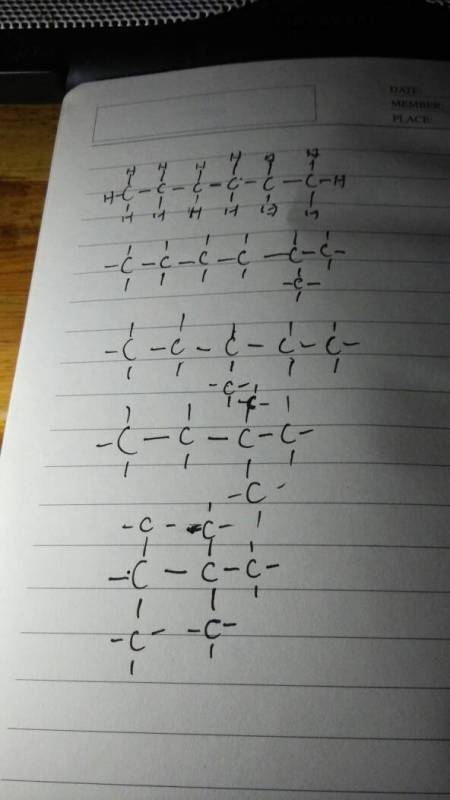 DATE:
MEMBER:
PLACE:
H H H H H H
H-C-C-C-C-C-C-H
H H H H H H
-C-C-C-C-C-C-
-C-
-C-C-C-C-C-
-C-
-C-
-C-C-C-C-
-C-
-C--C-
-C-C-C-
-C- -C-